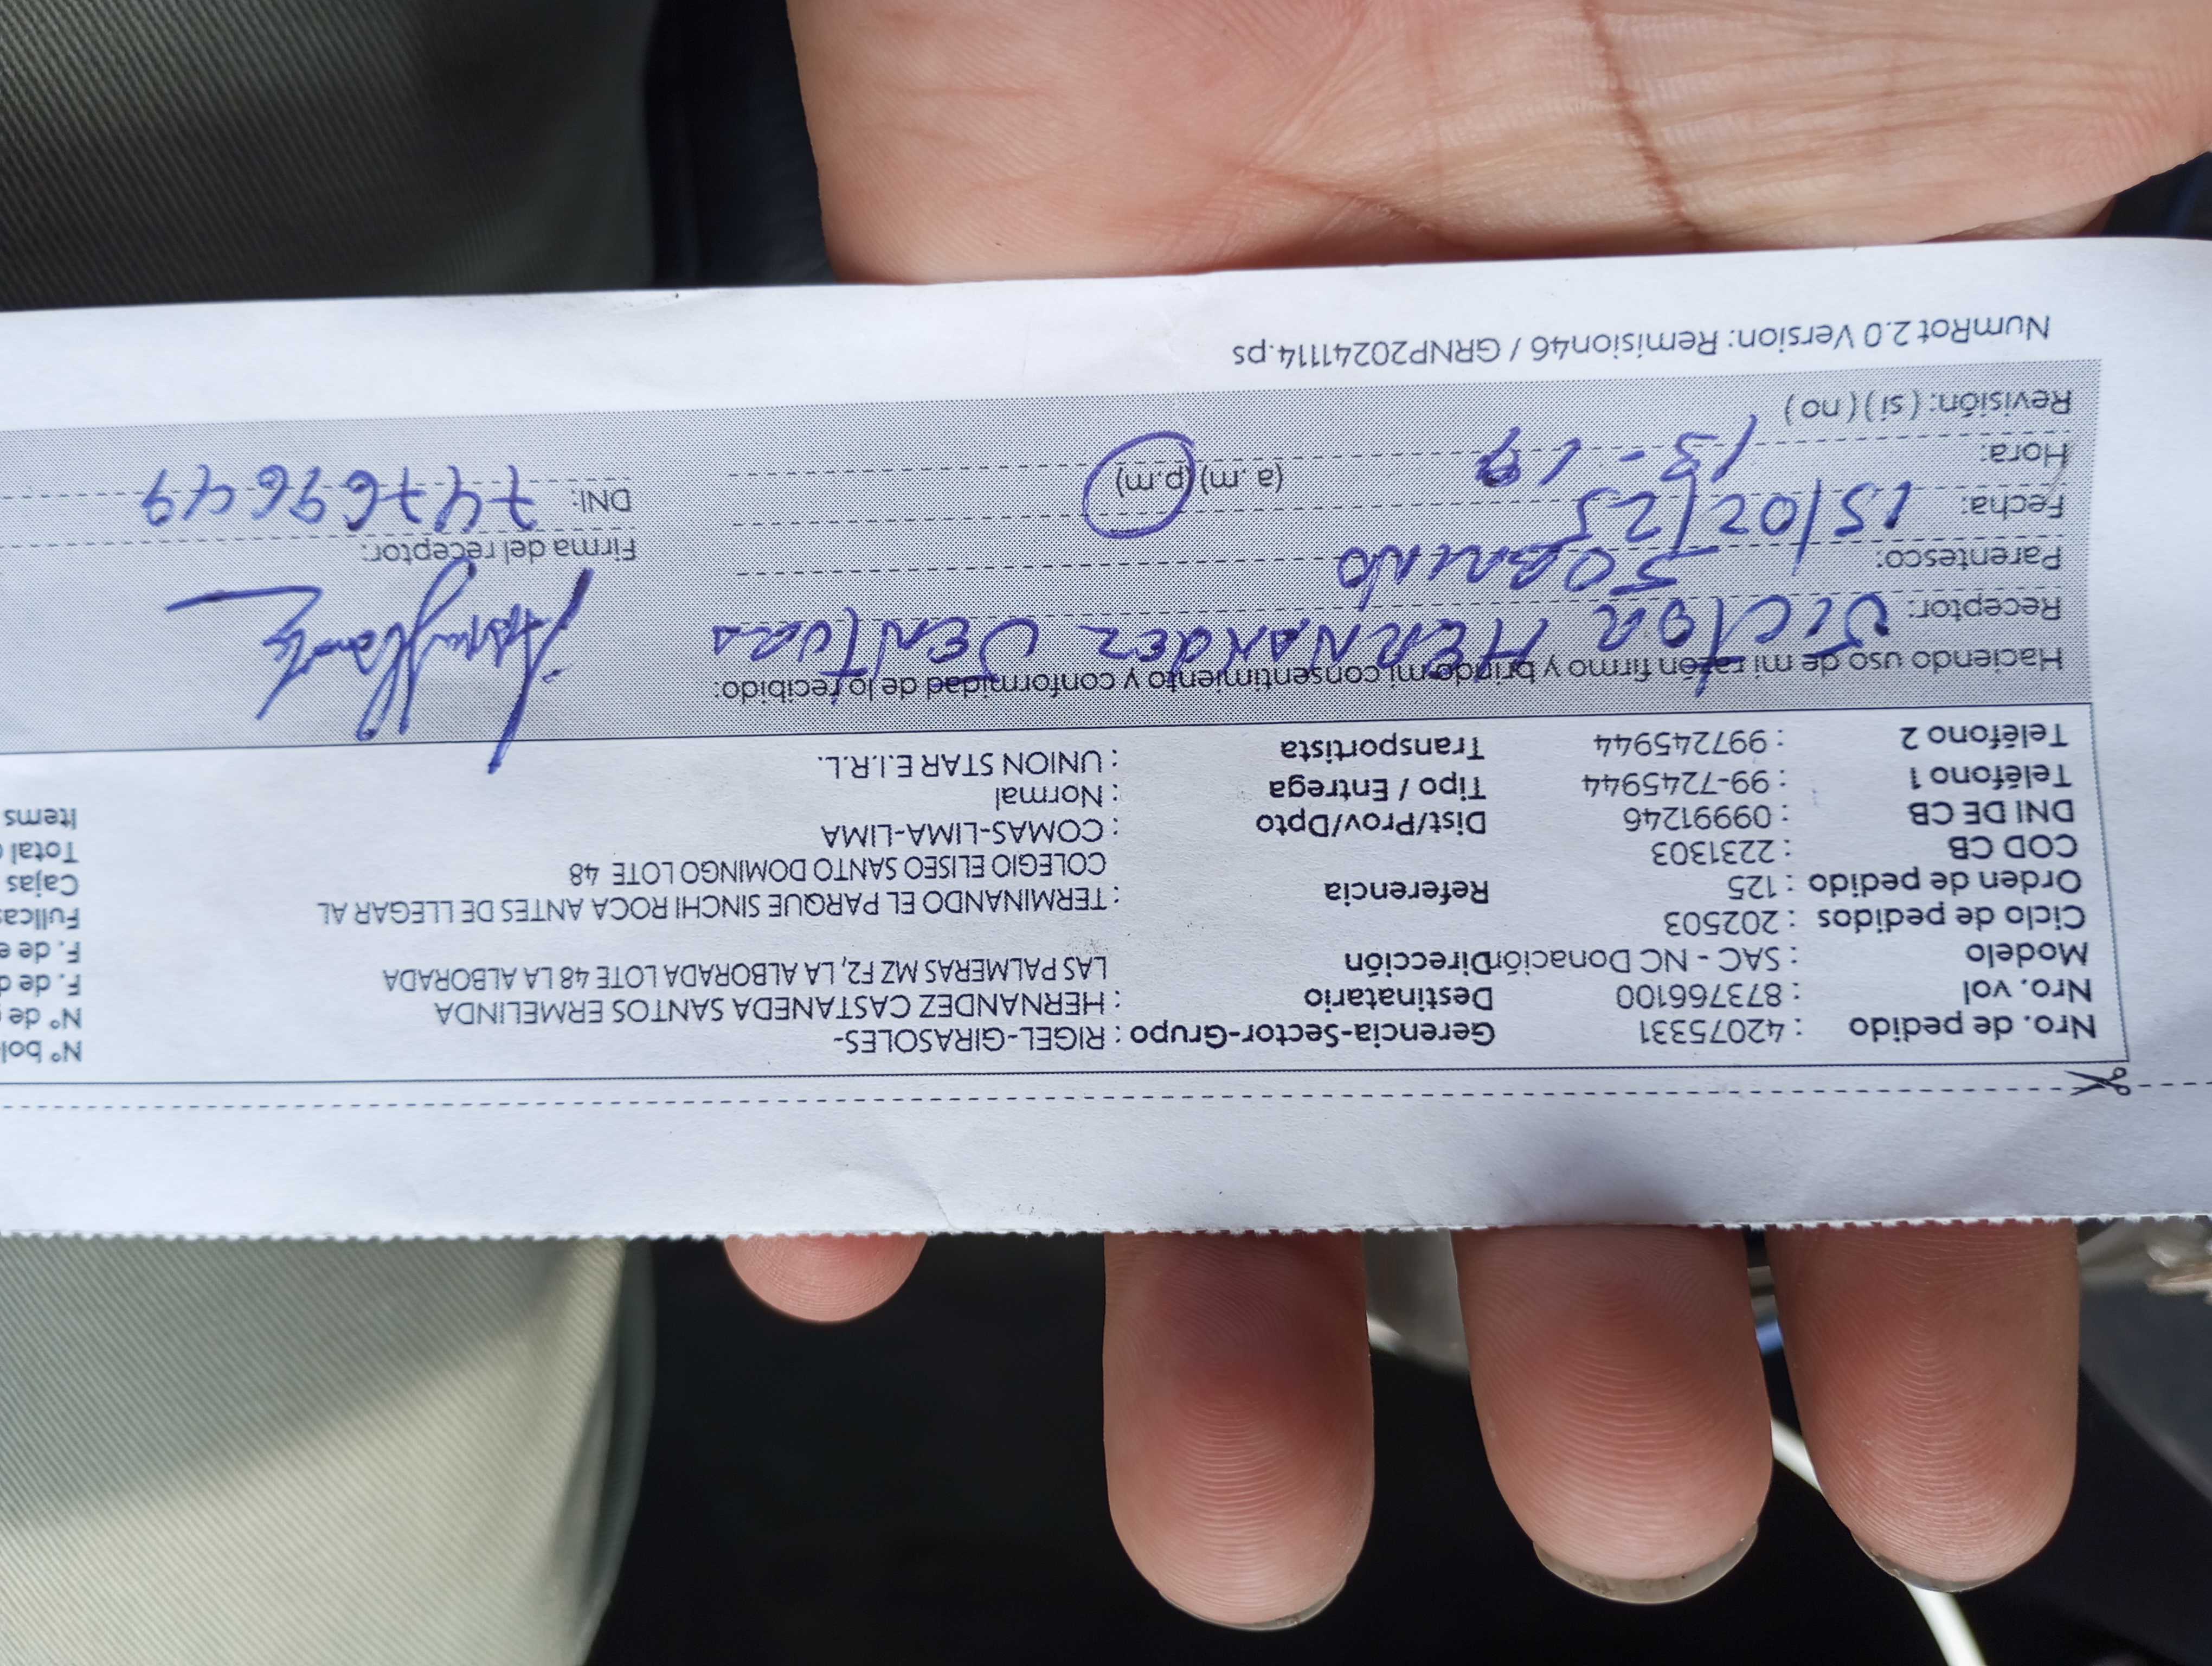 Nro. de pedido : 42075331 Gerencia-Sector-Grupo : RIGEL-GIRASOLES- N° bol
Nro. vol : 873766100 Destinatario : HERNANDEZ CASTANEDA SANTOS ERMELINDA N° de
Modelo : SAC - NC Donación Dirección LAS PALMERAS MZ F2, LA ALBORADA LOTE 48 LA ALBORADA F. de
Ciclo de pedidos : 202503 F. de e
Orden de pedido : 125 Referencia : TERMINANDO EL PARQUE SINCHI ROCA ANTES DE LLEGAR AL Fullcas
COD CB : 2231303 COLEGIO ELISEO SANTO DOMINGO LOTE 48 Cajas
DNI DE CB : 09991246 Dist/Prov/Dpto : COMAS-LIMA-LIMA Total
Teléfono 1 : 99-7245944 Tipo / Entrega : Normal Items
Teléfono 2 : 997245944 Transportista : UNION STAR E.I.R.L.
Haciendo uso de mi razón firmo y brindo mi consentimiento y conformidad de lo recibido:
Receptor: VICTOR HERNANDEZ VENTURA
Parentesco: SOBRINO Firma del receptor:
Fecha: 15/02/25 DNI: 74769649
Hora: 13 - 19 (a.m) (p.m)
Revisión: (si) (no)
NumRot 2.0 Version: Remision46 / GRNP20241114.ps